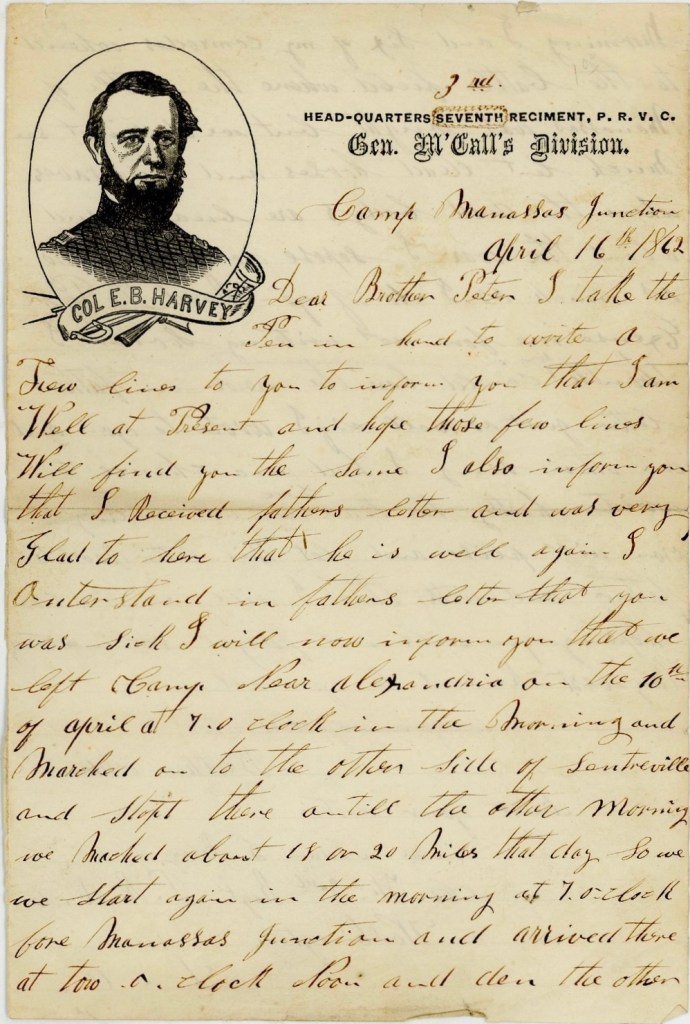 3rd.
HEAD-QUARTERS SEVENTH REGIMENT, P. R. V. C.
Gen. M'Call's Division.
COL E. B. HARVEY
Camp Manassas Junction
April 16th 1862
Dear Brother Peter I take the
Pen in hand to write a
Few lines to you to inform you that I am
Well at Present and hope those few lines
Will find you the Same I also inform you
that I Received fathers letter and was very
Glad to here that he is well again I
Outerstand in fathers letter that you
was Sick I will now inform you that we
left Camp Near alexandria on the 10th
of april at 7.o clock in the Morning and
Marched on to the other Side of Sentreville
and Stopt there untill the other Morning
we Mached about 18 or 20 Miles that day So we
we Start again in the morning at 7.o-clock
fore Manassas Junction and arrived there
at tow .o. clock Noon and den the other